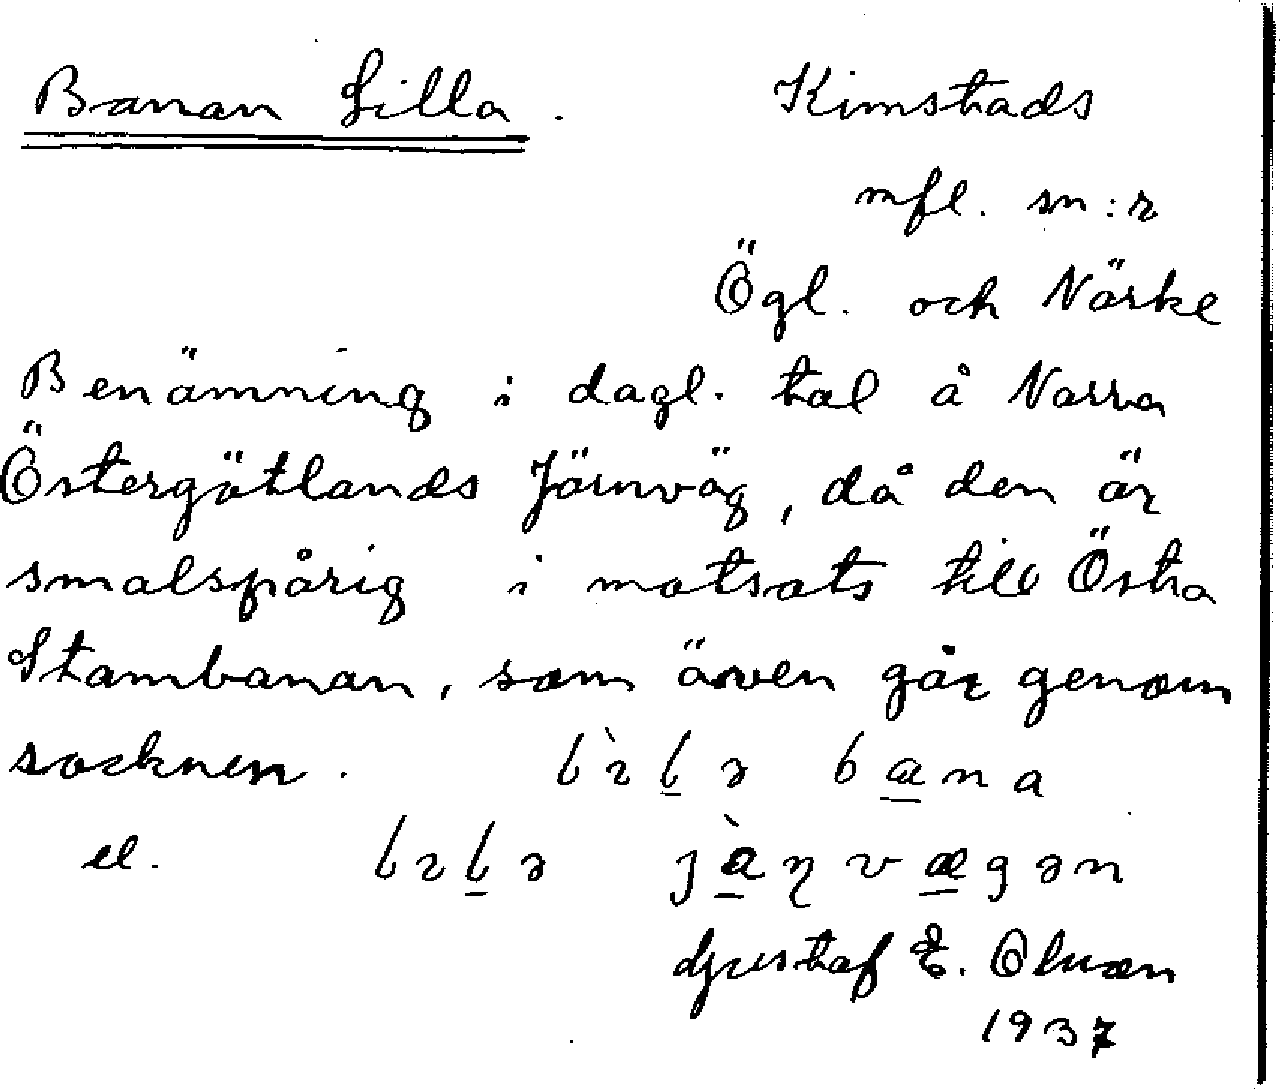 Banan Lilla. Kimstads
mfl. sn:r
Ögl. och Närke
Benämning i dagl. tal å Norra
Östergötlands Järnväg, då den är
smalspårig i motsats till Östra
Stambanan, som även går genom
socknen.
el.
Gustaf E. Olsson
1937